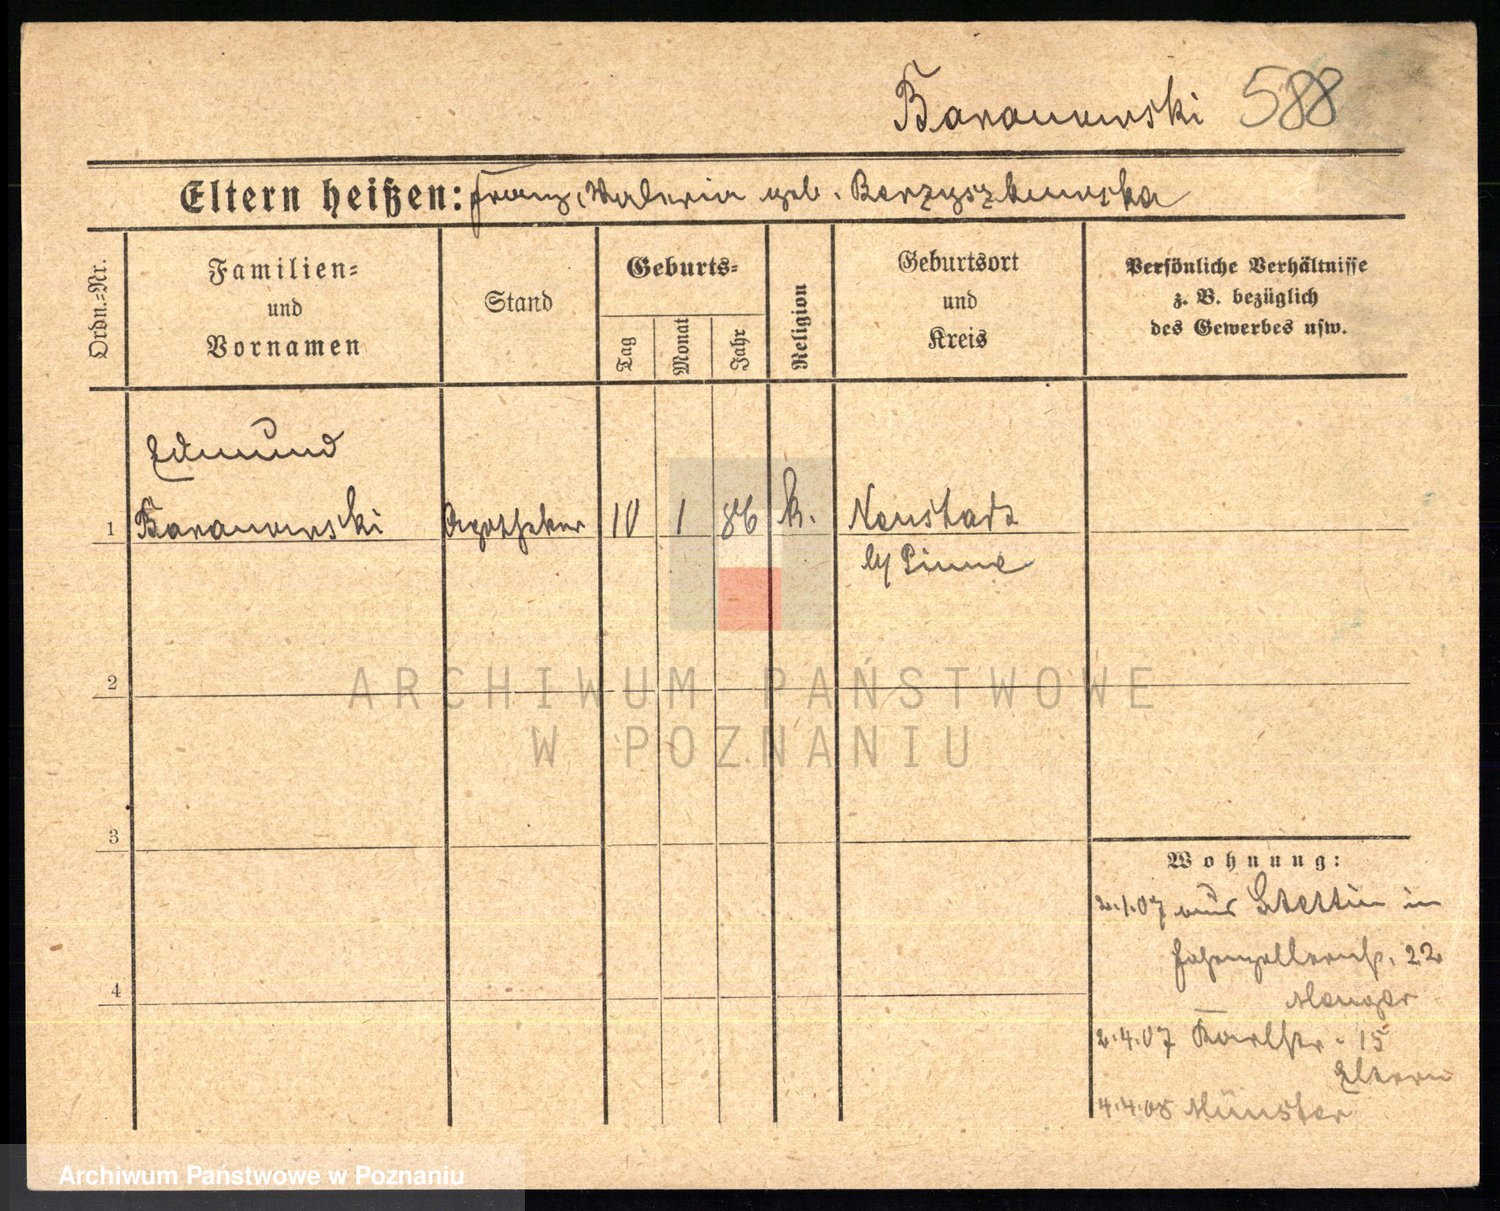 Baranowski 588
Eltern heißen: Franz, Valeria geb. Borzyszkowska
Ordn.-Nr.
Familien-
und
Vornamen
Stand
Geburts-
Tag
Monat
Jahr
Religion
Geburtsort
und
Kreis
Persönliche Verhältnisse
z. B. bezüglich
des Gewerbes usw.
Edmund
1 Baranowski Apotheker 10 1 86 k. Neustadt
b/ Pinne
2
ARCHIWUM PAŃSTWOWE
W POZNANIU
3
Wohnung:
2.1.07 aus Stettin in
Hohenzollernstr. 22
4
2.4.07 Karlstr. 15
Eltern
4.4.08 Münster
Archiwum Państwowe w Poznaniu